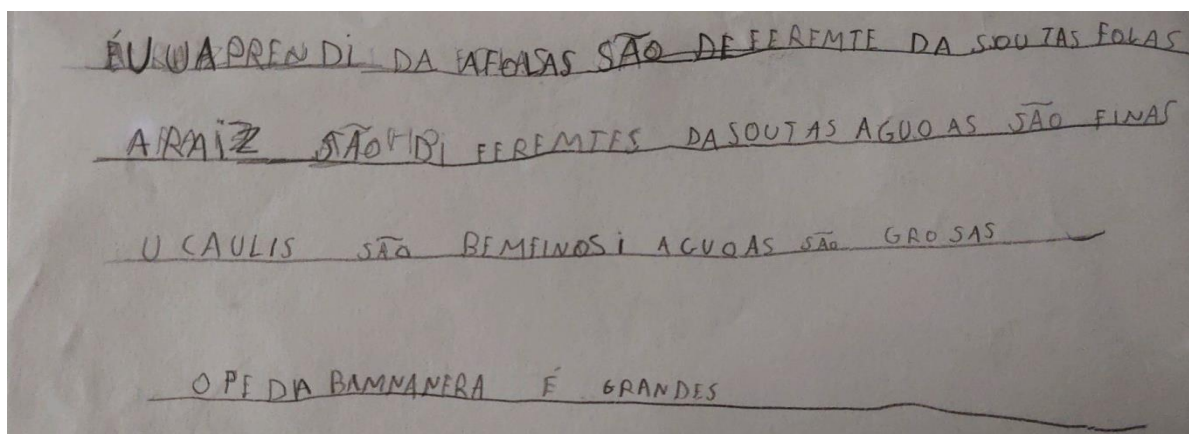 ÉU UAPRENDI DA AFOASAS SÃO DEFEREMTE DA SOUTAS FOLAS
ARAIZ SÃO DiFEREMTES DASOUTAS AGUOAS SÃO FINAS
U CAULIS SÃO BEMFINOSI AGUOAS SÃO GROSAS
OPE DA BAMNANERA É GRANDES